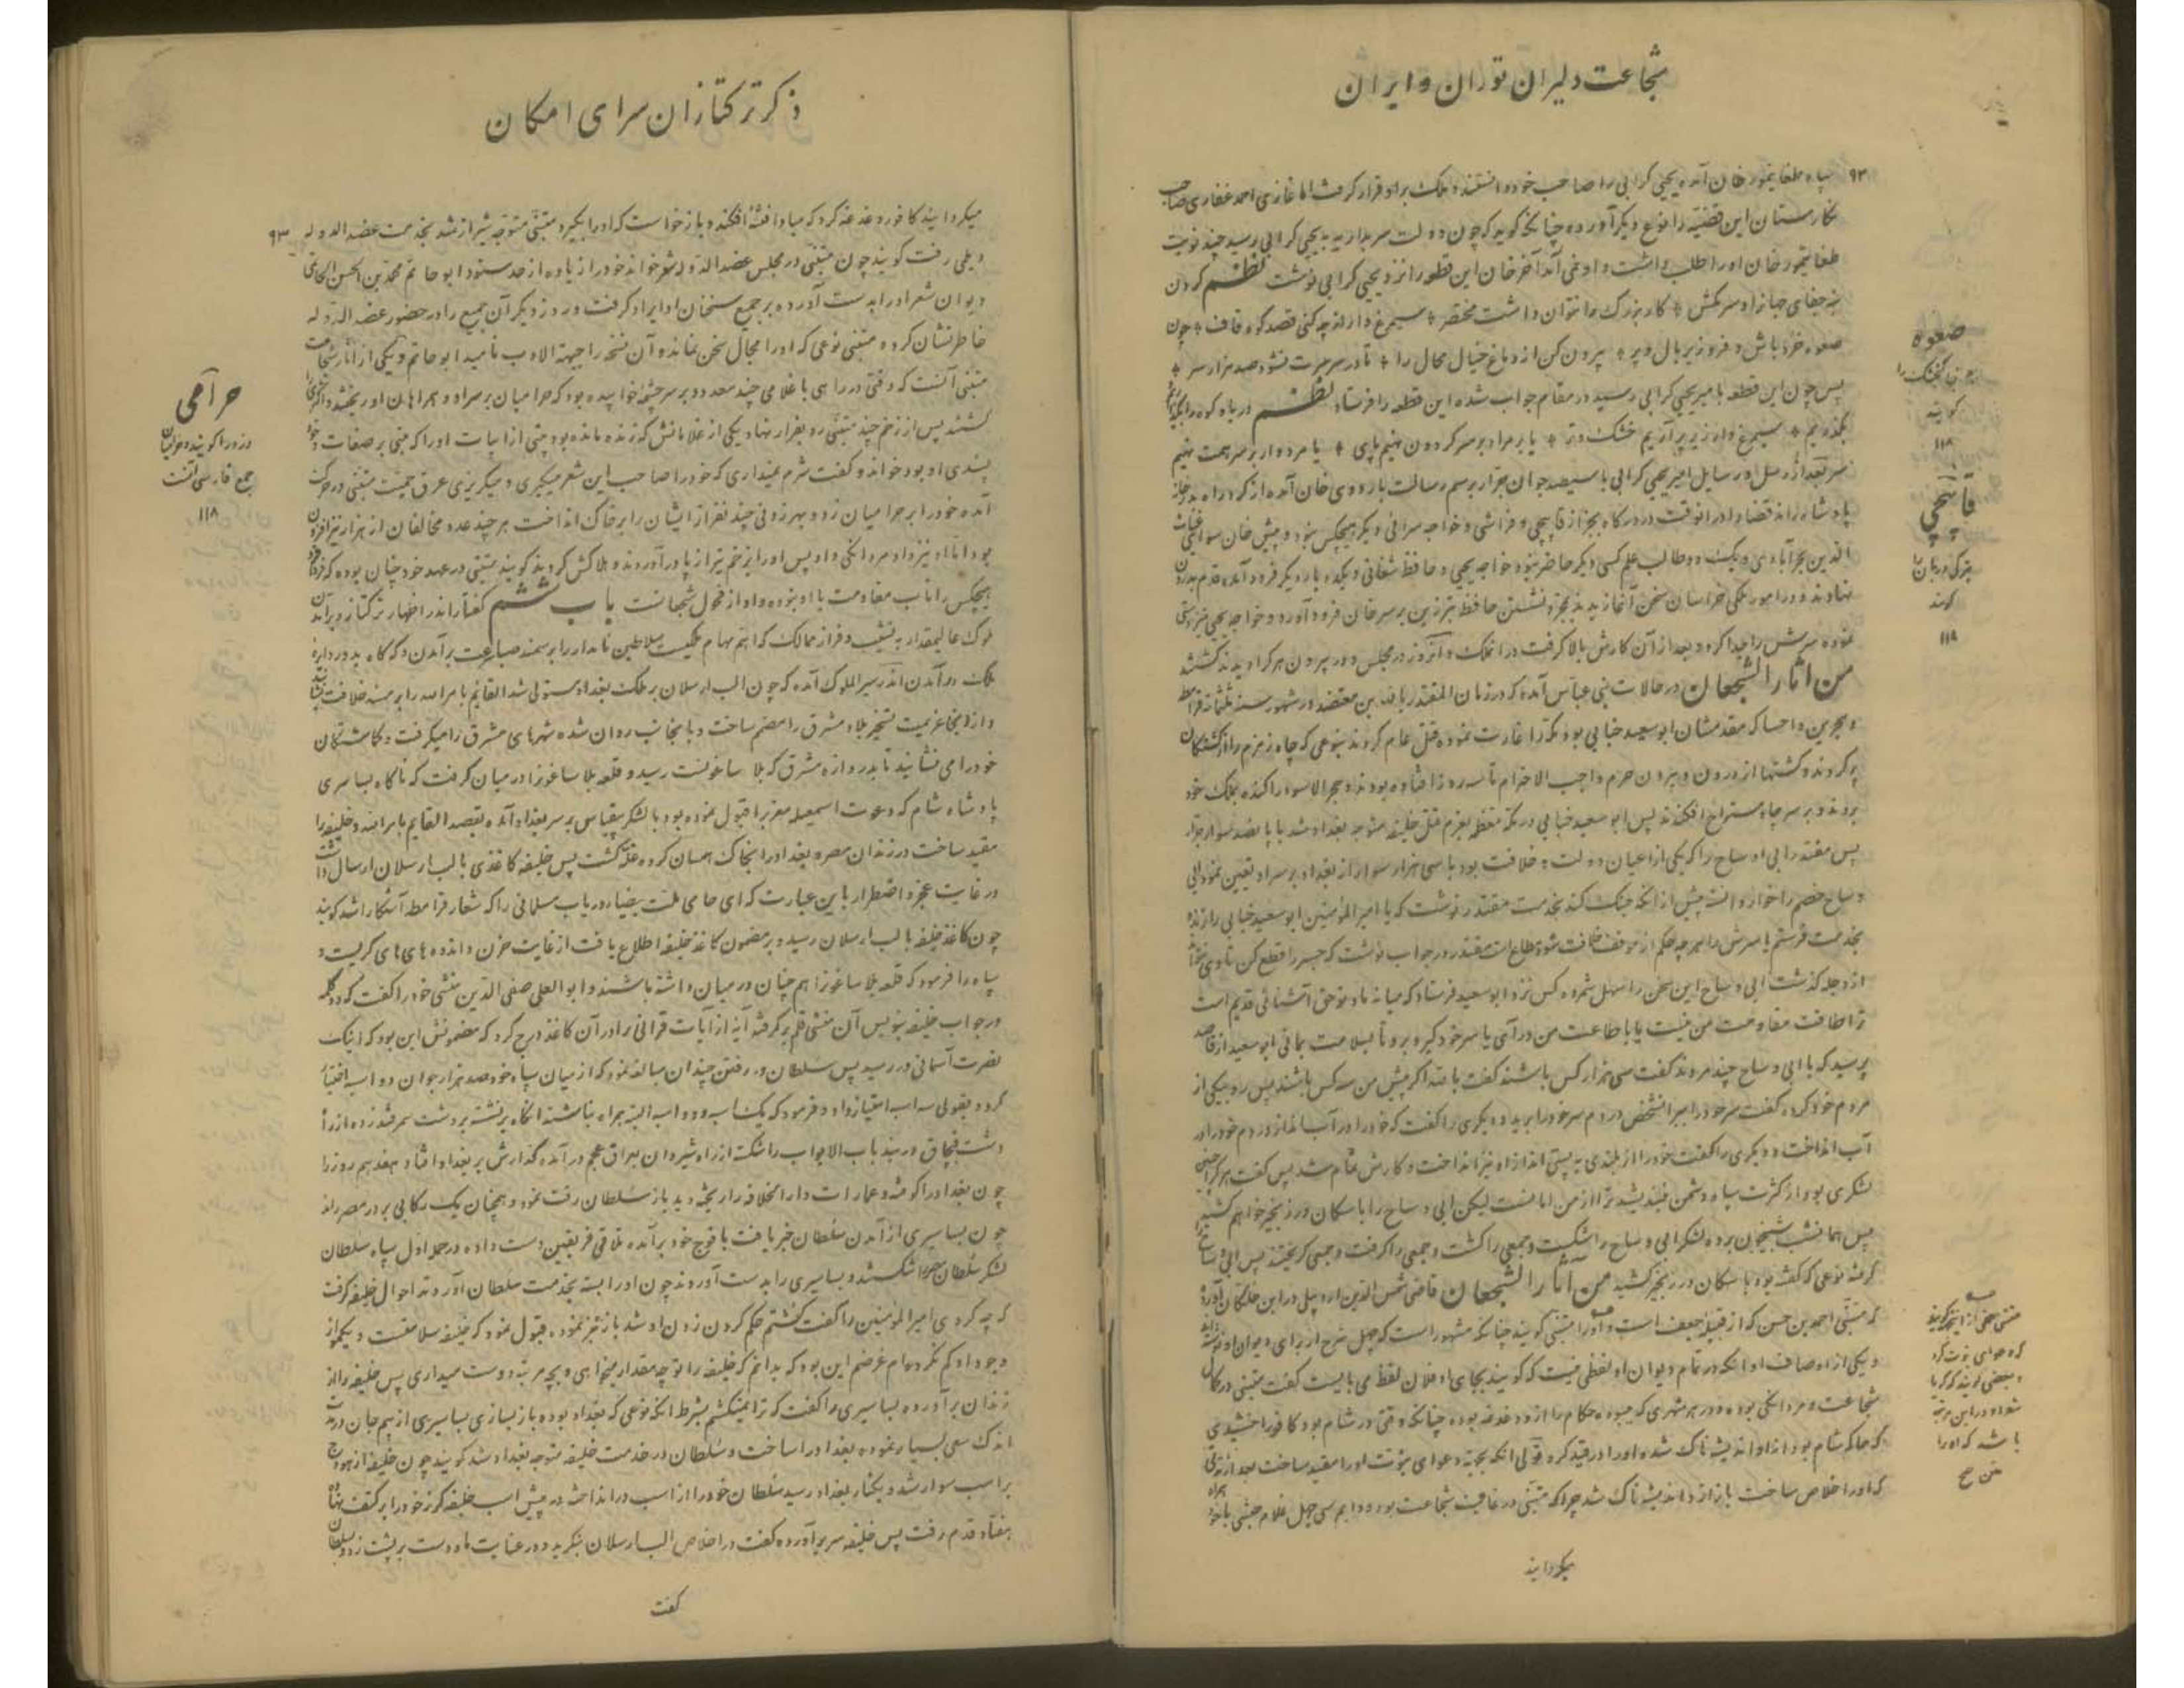 شجاعت دلیران توران و ایران
۹۳
سپاه طغایتمور خان آمده یحیی کرابی را صاحب خود دانستند و ملک براو قرار گرفت اما غازی احمد غفاری صاحب
نگارستان این قضیه را نوع دیگر آورده چنانکه گوید که چون دولت سربداریه به یحیی کرابی رسید چند نوبت
طغایتمور خان او را طلب داشت و او نمی آمد آخر خان این قطعه را نزد یحیی کرابی نوشت نظم گردن
بنه جفای جهان را و سر مکش * کار بزرگ را نتوان داشت مختصر * سیمرغ وار از چه کنی قصد کوه قاف * چون
صعوه خرد باش و فرو ریز بال و پر * بیرون کن از دماغ خیال محال را * تا در سر سرت نشود صد هزار سر *
پس چون این قطعه بامیر یحیی کرابی رسید در مقام جواب شده این قطعه را فرستاد نظم دریا و کوه را بگذاریم و
بگذریم * سیمرغ وار زیر پر آریم خشک و تر * یا بر مراد بر سر گردون نهیم پای * یا مرد وار بر سر همت نهیم
سر بعد از رسل و رسایل امیر یحیی کرابی با سیصد جوان جرار برسم رسالت باردوی خان آمده از گرد راه بدرخانه
پادشاه راند قضا را در انوقت در درگاه بجز از قاپچی و فراشی و خواجه سرائی دیگر هیچکس نبود و پیش خان سوا غیاث
الدین بحرآبادی و یک دو طالب علم کسی دیگر حاضر نبود خواجه یحیی و حافظ شغانی و یکدو یار دیگر فرود آمده قدم بدرون
نهادند و در امور ملکی خراسان سخن آغازیدند بمجرد نشستن حافظ تبرزین بر سر خان فرود آورد و خواجه یحیی نیز دستی
نموده سرش را جدا کرد و بعد از آن کارش بالا گرفت در انملک و آنروز در مجلس و در بیرون هر کرا دیدند کشتند
من آثار الشجعان در حالات بنی عباس آمده که در زمان المقتدر بالله بن معتضد در شهور سنه ثلثمائه قرامطه
و بحرین و احسا که مقدمشان ابو سعید جنابی بود مکه را غارت نموده قتل عام کردند بنوعی که چاه زمزم را از کشتگان
پر کردند و کشتها از درون و بیرون حرم واجب الاحترام تا سه روز افتاده بودند و حجر الاسود را کنده بملک خود
بردند و بر سر چاه مستراح افکندند پس ابو سعید جنابی در مکه معظمه بعزم قتل خلیفه متوجه بغداد شد با پانصد سوار جرار
پس مقتدر ابی او ساج را که یکی از اعیان دولت خلافت بود با سی هزار سوار از بغداد بر سر او تعیین نمود ابی
و ساج خصم را خوار دانسته پیش از آنکه جنگ کند بخدمت مقتدر نوشت که یا امیر المؤمنین ابو سعید جنابی را زنده
بخدمت فرستم یا سرش را هر چه حکم از موقف خلافت شود مطاع است مقتدر در جواب نوشت که جسر را قطع کن تا وی نتواند
از دجله گذشت ابی و ساج این سخن را سهل شمرده کس نزد ابو سعید فرستاد که میانه ما و تو حق آشنائی قدیم است
ترا طاقت مقاومت من نیست یا باطاعت من در آی یا سر خود گیر و برو تا بسلامت بمانی ابو سعید از قاصد
پرسید که با ابی و ساج چند مردند گفت سی هزار کس باشند گفت بالله اگر پیش من سه کس باشند پس رو بیکی از
مردم خود کرد گفت سر خود را ببر انشخص در دم سر خود را برید و دیگری را گفت که خود را در آب انداز در دم خود را در
آب انداخت و دیگری را گفت خود را از بلندی به پستی انداز او نیز انداخت و کارش تمام شد پس گفت هر کرا چنین
لشکری بود از کثرت سپاه دشمن نیندیشد ترا از من امانست لیکن ابی و ساج را با سگان در زنجیر خواهم کشید
پس همانشب شبیخون برده لشکر ابی و ساج را شکست و جمعی را کشت و جمعی را گرفت و جمعی گریختند پس ابی و ساج را
گرفته نوعی که گفته بود با سگان در زنجیر کشید من آثار الشجعان قاضی شمس الدین اردبیلی در ابن خلکان آورده
که متنبی احمد بن حسن که از قبیله جعیف است و او را متنبی گویند چنانکه مشهور است که چهل شرح از برای دیوان او نوشته اند
و یکی از اوصاف او آنکه در تمام دیوان او لفظی نیست که گویند بجای او فلان لفظ می بایست گفت متنبی در کمال
شجاعت و مردانگی بوده و در هر شهری که میبوده حکام را از او دغدغه بوده چنانکه وقتی در شام بود کافور اخشیدی
که حاکم شام بود از او اندیشه ناک شده او را در قید کرد قولی آنکه بجهة دعوای نبوت او را مقید ساخت بعد از مدتی
که او را خلاص ساخت باز از او اندیشه ناک شد چرا که متنبی در غایت شجاعت بود و دایم سی چهل غلام حبشی با خود همراه
میگردانید
صعوه
گنجشک را
گویند
۱۱۸
قاپچی
بترکی دربان را
گویند
۱۱۸
ذکر ترکتازان سرای امکان
۹۳
میگردانید کافور دغدغه کرد که مبادا فتنه افکند و باز خواست که او را بگیرد متنبی متوجه شیراز شد بخدمت عضد الدوله
دیلمی رفت گویند چون متنبی در مجلس عضد الدوله شعر خواند خود را زیاده از حد ستود ابو حاتم محمد بن الحسن الحاتمی
دیوان شعر او را بدست آورده بر جمیع سخنان او ایراد گرفت و روز دیگر آن جمیع را در حضور عضد الدوله
خاطر نشان کرده متنبی نوعی که او را مجال سخن نماند و آن نسخه را جبهة الادب نامید ابو حاتم و یکی از آثار شجاعت
متنبی آنست که وقتی در راهی با غلامی چند معدود بر سر چشمه خوابیده بود که حرامیان بر سر او و همراهان او ریختند و اکثری را
کشتند پس از زخم چند متنبی رو بفرار نهاد یکی از غلامانش که زنده مانده بود بیتی از ابیات او را که مبنی بر صفات و خود
پسندی او بود خواند و گفت شرم نمیداری که خود را صاحب این شعر میگیری و میگریزی عرق حمیت متنبی در حرکت
آمده خود را بر حرامیان زد و بهر زدنی چند نفر از ایشان را بر خاک انداخت هر چند عدد مخالفان از هزار نیز افزون
بود اما او نیز داد مردانگی داد پس او را بزخم تیر از پا در آوردند و هلاکش کردند گویند متنبی در عهد خود چنان بوده که
هیچکس را تاب مقاومت با او نبوده و او از فحول شجعانست باب ششم گفتار اندر اظهار ترکتاز و براندن
ملوک عالیمقدار به نشیب و فراز ممالک که اهم مهام ملکیست سلاطین نامدار را بر سمند صبا سرعت بر آمدن و گه گاه بدور دایره
ملک در آمدن اندر سیر الملوک آمده که چون الب ارسلان بر ملک بغداد مستولی شد القائم بامر الله را بر مسند خلافت نشانید
و از انجا عزیمت تسخیر بلاد مشرق را مصمم ساخت و بانجانب روان شده شهرهای مشرق را میگرفت و گماشتگان
خود را می نشانید تا بدروازه مشرق که بلا ساغونست رسید و قلعه بلا ساغونرا در میان گرفت که ناگاه بساسری
پادشاه شام که دعوت اسمعیلیه مغرب را قبول نموده بود با لشکر بیقیاس بر سر بغداد آمده بقصد القایم بامر الله و خلیفه را
مقید ساخت در زندان مصر و بغداد را بخاک یکسان کرده غله گشت پس خلیفه کاغذی بالب ارسلان ارسال داشت
در غایت عجز و اضطرار باین عبارت که ای حامی ملت بیضا دریاب مسلمانی را که شعار قرامطه آشکارا شد گویند
چون کاغذ خلیفه بالب ارسلان رسید و بر مضمون کاغذ خلیفه اطلاع یافت از غایت حزن و اندوه های های گریست و
سپاه را فرمود که قلعه بلا ساغونرا هم چنان در میان داشته باشند و ابو العلی صفی الدین منشی خود را گفت که دو کلمه
در جواب خلیفه بنویس آن منشی قلم بر گرفته آیه از آیات قرآنی را در آن کاغذ درج کرد که مضمونش این بود که اینک
نصرت آسمانی در رسید پس سلطان در رفتن چندان مبالغه نمود که از میان سپاه خود صد هزار جوان دو اسبه اختیار
کرد و بقولی سه اسب امتیاز داد و فرمود که یکتا سه و دو اسبه البته همراه باشند آنگاه بر نشسته بر دشت سمرقند زده از راه
دشت قبچاق دربند باب الابواب را شکسته از راه شیروان بعراق عجم در آمد گذارش بر بغداد افتاد هفدهم روز را
چون بغداد را کوفته و عمارات دار الخلافه را ریخته دید باز سلطان رقت نمود و همچنان یک رکابی بر در مصر راند
چون بساسیری از آمدن سلطان خبر یافت با فوج خود برآمده تلاقی فریقین دست داده در حمله اول سپاه سلطان
لشکر سلطان مصر را شکستند و بساسیری را بدست آوردند چون او را بسته بخدمت سلطان آوردند احوال خلیفه گرفت
که چه کردی امیر المؤمنین را گفت کشتم حکم کردن زدن او شد باز تجز نموده قبول نمود که خلیفه سلامتست و یکمو از
وجود او کم نکرده ام غرضم این بود که بدانم که خلیفه را تو چه مقدار میخواهی و بچه مرتبه دوست میداری پس خلیفه را از
زندان بر آورده بساسیری را گفت که ترا نمیکشم بشرط آنکه نوعی که بغداد بوده باز بسازی بساسیری از بیم جان در مدت
اندک سعی بسیار نموده بغداد را ساخت و سلطان در خدمت خلیفه متوجه بغداد شد گویند چون خلیفه از هودج
بر اسب سوار شد و بکنار بغداد رسید سلطان خود را از اسب در انداخته پیش اسب خلیفه گرز خود را بر کتف نهاده
هفتاد قدم رفت پس خلیفه سر بر آورده گفت در اخلاص الب ارسلان بنگرید و در عنایت ما و دست بر پشت زد و سلطان
گفت
حرامی
دزد را گویند و حرامیان
جمع فارسی آنست
۱۱۸